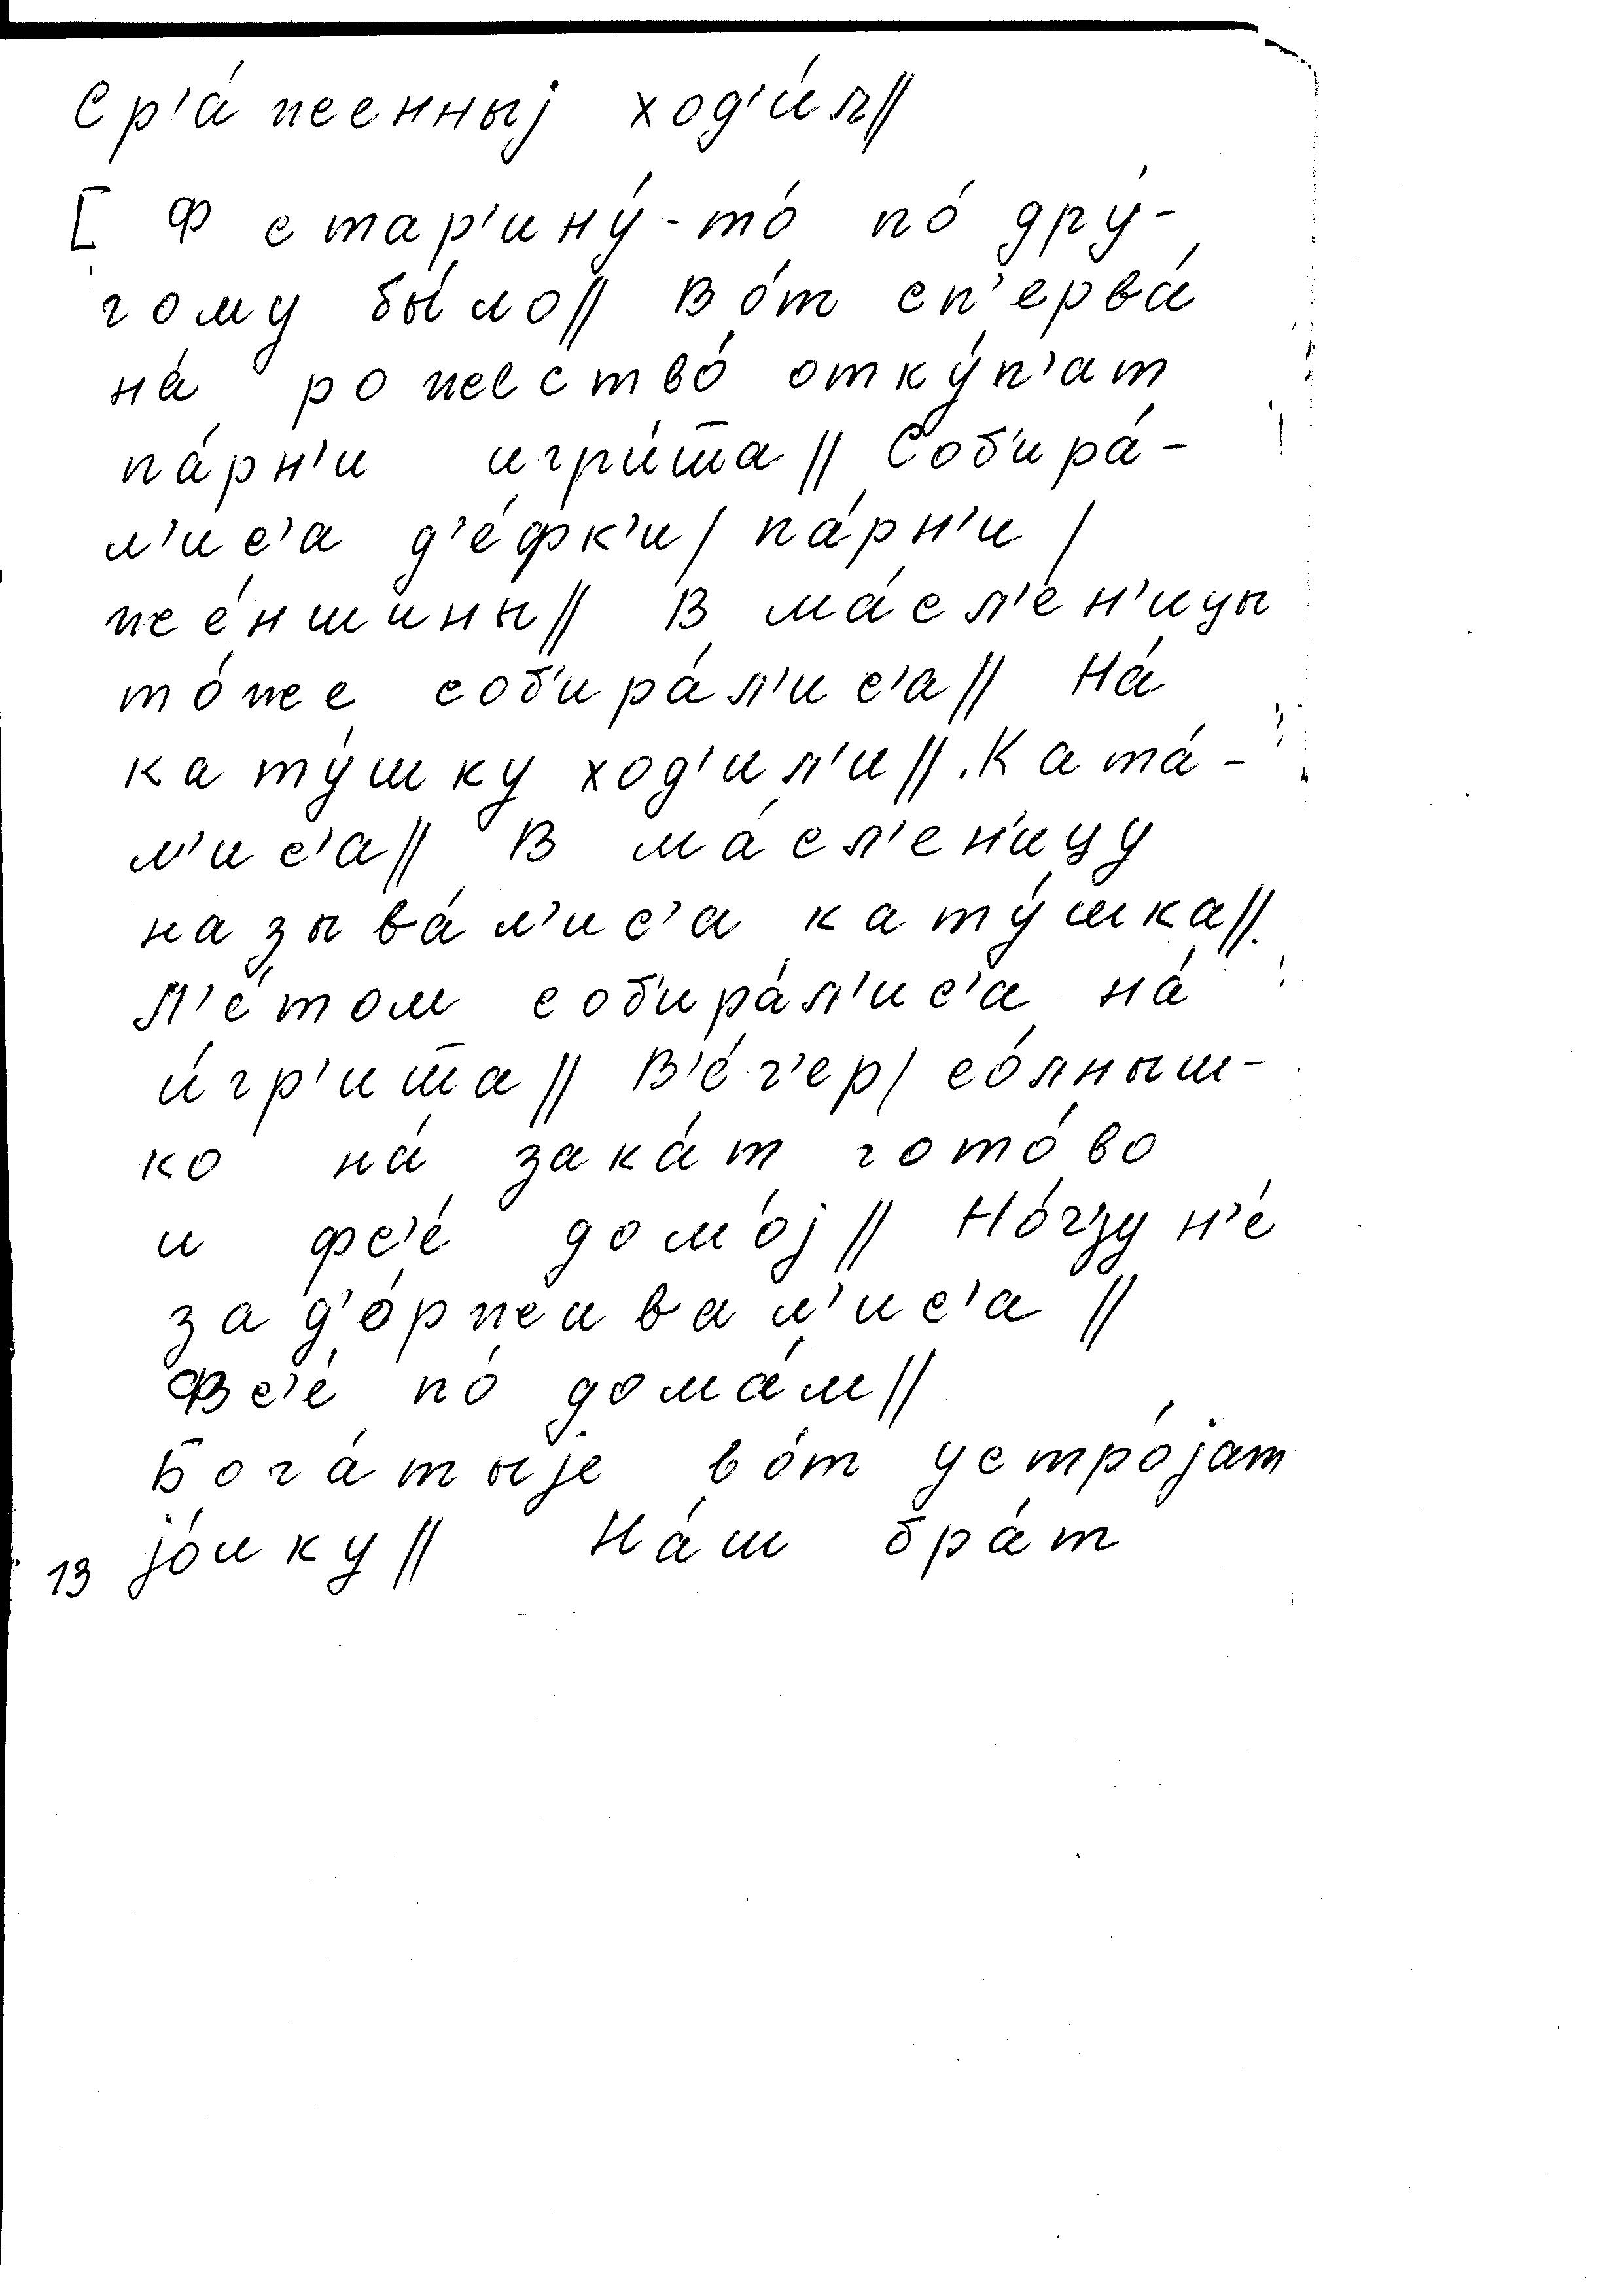 Ср'а́женныj ход'и́л//
[ Ф стар'ину́-то́ по́ дру́-
гому бы́ло// Во́т сп'ерва́
на́ рожество́ отку́п'ат
па́рн'и игри́ш̅а// Соб'ира́-
л'ис'а д'е́фк'и/ па́рн'и/
же́ншины// В ма́сл'ен'ицы
то́же соб'ира́л'ис'а// На́
кату́шку ход'ил'и//. Ката́-
л'ис'а// В ма́сл'ен'ицу
называ́л'ис'а кату́шка//.
Л'е́том соб'ира́л'ис'а на́
и́гр'иш̅а// В'е́ч'ер/ со́лныш-
ко на́ зака́т гото́во
и фс'е́ домо́j// Но́ч'jу н'е́
зад'о́рживал'ис'а//
Фс'е́ по́ дома́м//
Бога́тыjе во́т устро́jат
jо́лку// На́ш бра́т
13